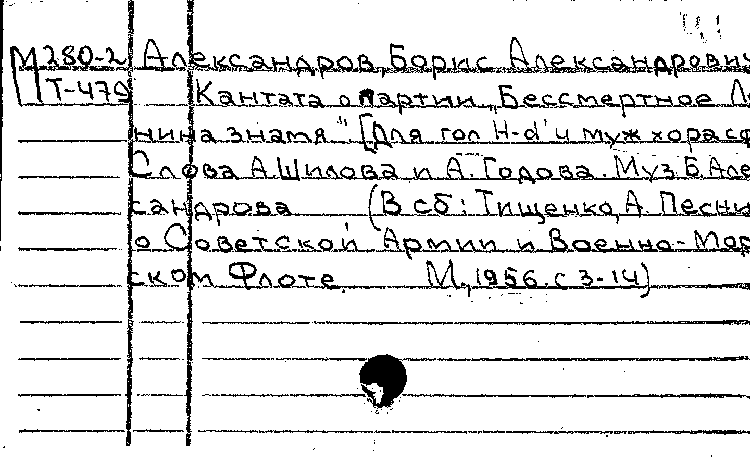 М280-2 Александров, Борис Александрович
Т-479 Кантата о партии „Бессмертное Ле
нина знамя" [Для гол H-d' и муж хора с ф
Слова А. Шилова и А. Годова. Муз Б. Алек
сандрова (В сб: Тищенко, А. Песни
о Советской Армии и Военно-Мор
ском Флоте. М., 1956. с 3-14)